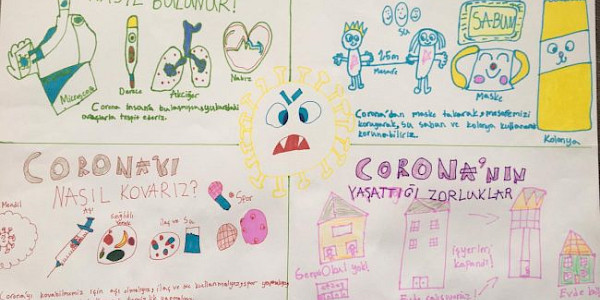 NASIL BULUNUR?
Mikroskop
Derece
Akciğer
Nabız
Corona insanla bulaşmışsa, yukarıdaki
araçlarla tespit ederiz.
1,5m
Mesafe
Su
SABUN
Maske
Kolonya
Corona'dan maske takarak, mesafemizi
koruyarak, su sabun ve kolonya kullanarak
korunabiliriz.
CORONAYI
NASIL KOVARIZ?
Mendil
Aşı
Sağlıklı
Yemek
İlaç ve Su
Spor
Corona'yı kovabilmemiz için aşı olmalıyız, ilaç ve su kullanmalıyız, spor yapmalıyız
CORONA'NIN
YAŞATTIĞI ZORLUKLAR
Okul yok!
Evde çalışıyoruz!
İşyerleri
kapandı!
Evde